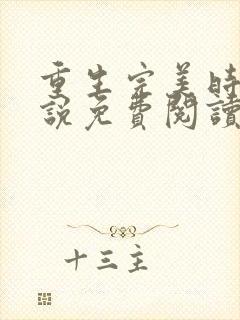 重生完美時
說免費閱讀
十三主